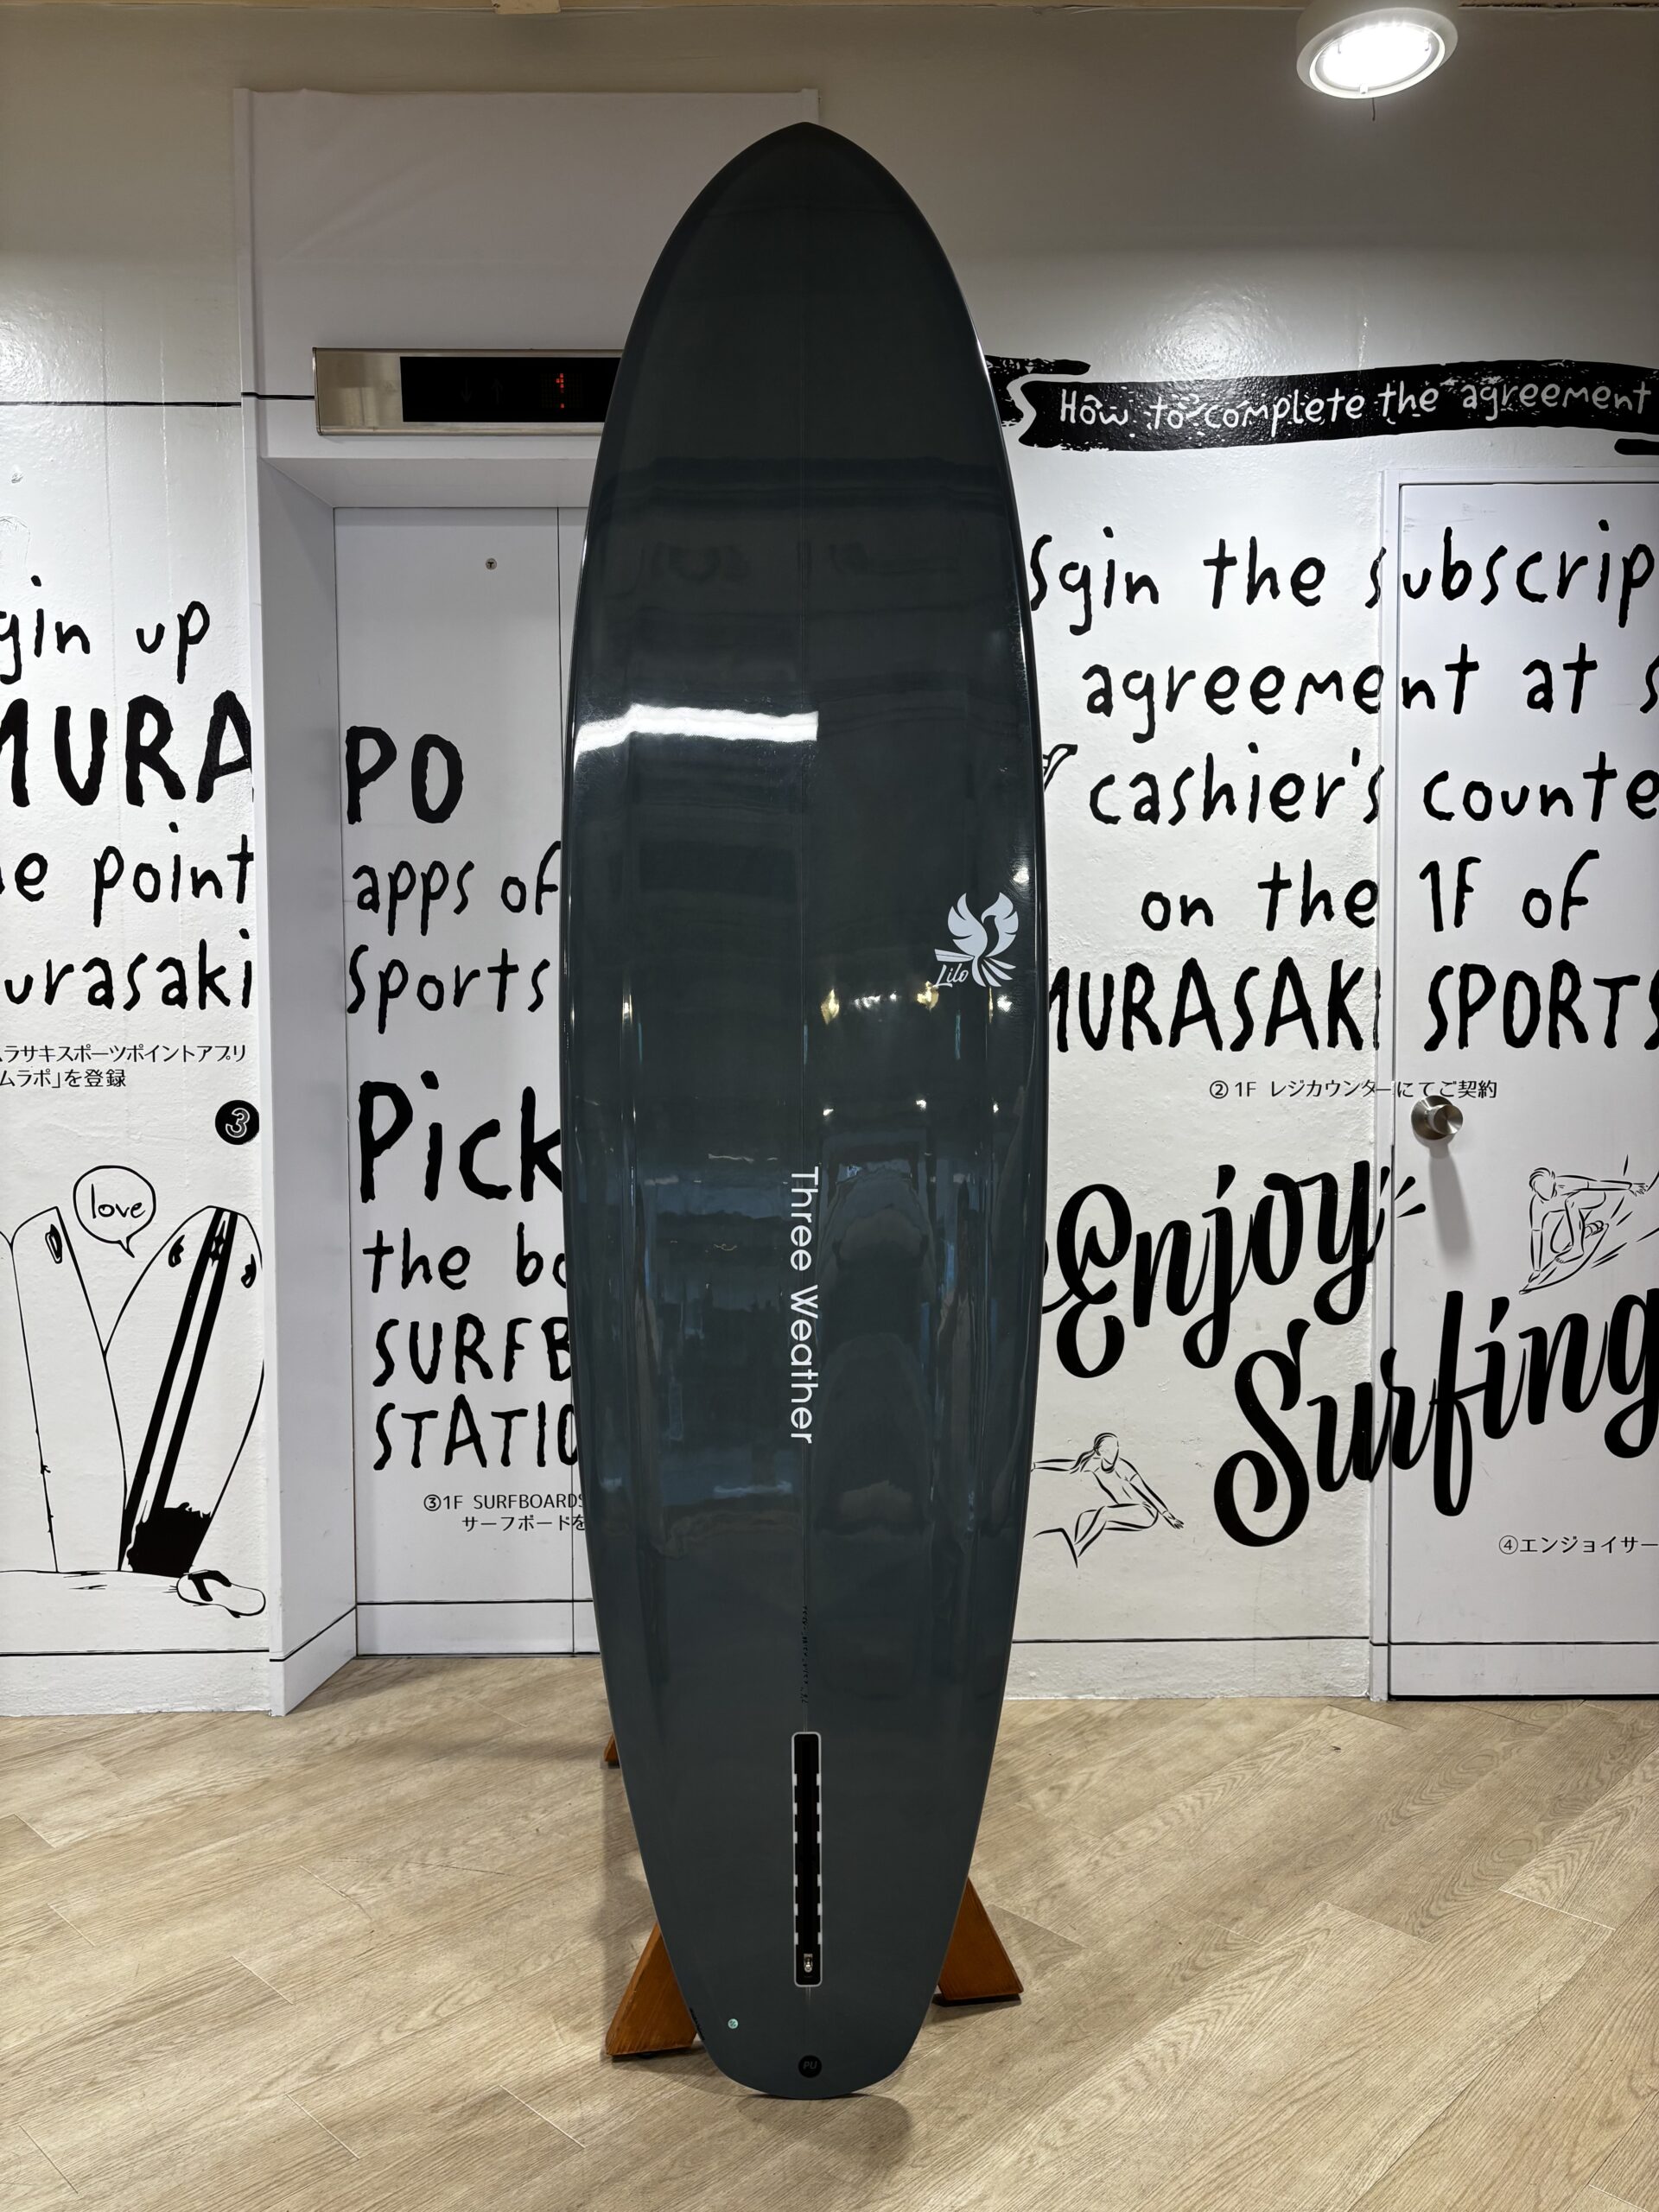 1
How to complete the agreement
gin up
MURA
PO
e point
apps of
urasaki
Sports
ラサキスポーツポイントアプリ
ムラポ」を登録
3
Pick
the bo
SURFB
STATIO
③1F SURFBOARDS
サーフボードを
love
Sgin the subscrip
agreement at s
cashier's counte
on the 1F of
MURASAKI SPORTS
②1F レジカウンターにてご契約
Enjoy
Surfing
④エンジョイサー
Lilo
Three Weather
PU